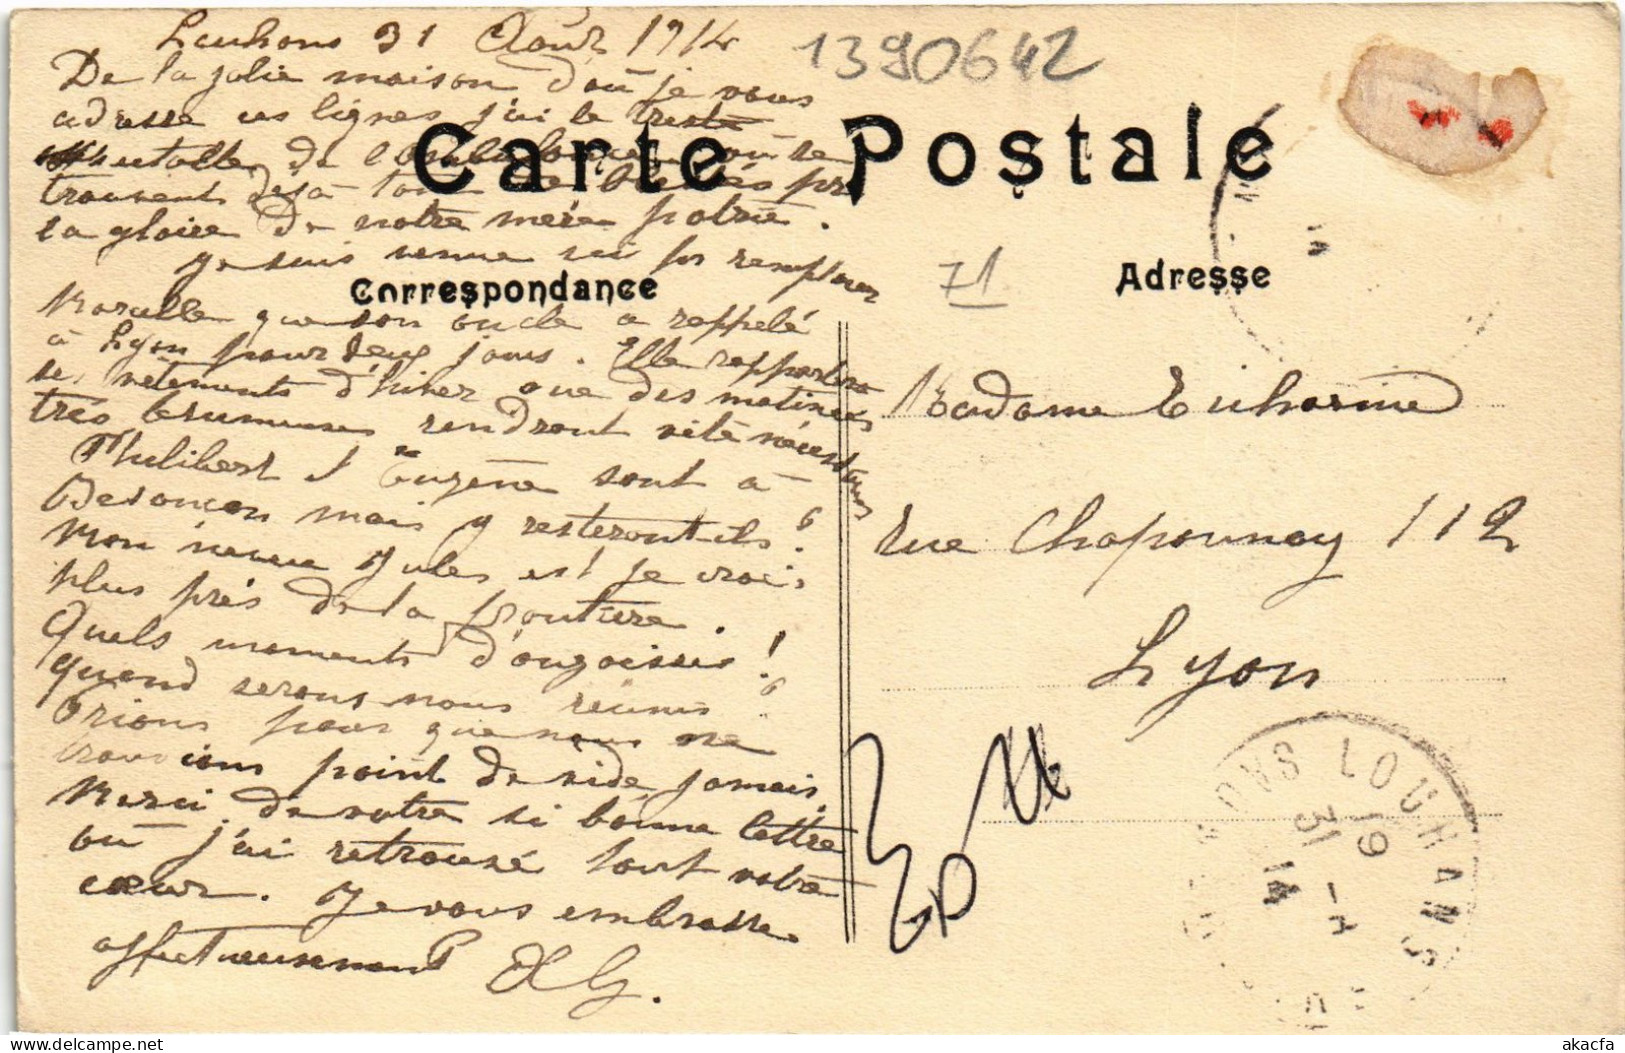 Louhans 31 Août 1914
De la jolie maison d'où je vous
adresse ces lignes j'ai le triste
spectacle de l'ambulance où se
trouvent déjà tant de blessés pr
la gloire de notre mère patrie.
Je suis venue ici pr remplacer
Marcelle que son oncle a rappelé
à Lyon pour deux jours. Elle rapportera
ses vêtements d'hiver que des matinées
très brumeuses rendront vite nécessaires
Philibert et Eugène sont à
Besançon mais y resteront-ils?
Mon neveu Jules est je crois
plus près de la frontière.
Quels moments d'angoisses!
quand serons nous réunis?
Prions pour que nous ne
trouvions point de vide, jamais.
Merci de votre si bonne lettre
où j'ai retrouvé tout votre
cœur. Je vous embrasse
affectueusement
1390642
Carte Postale
Correspondance
71
Adresse
Madame
rue Chaponnay 112
Lyon
LOUHANS
31
14
akacfa